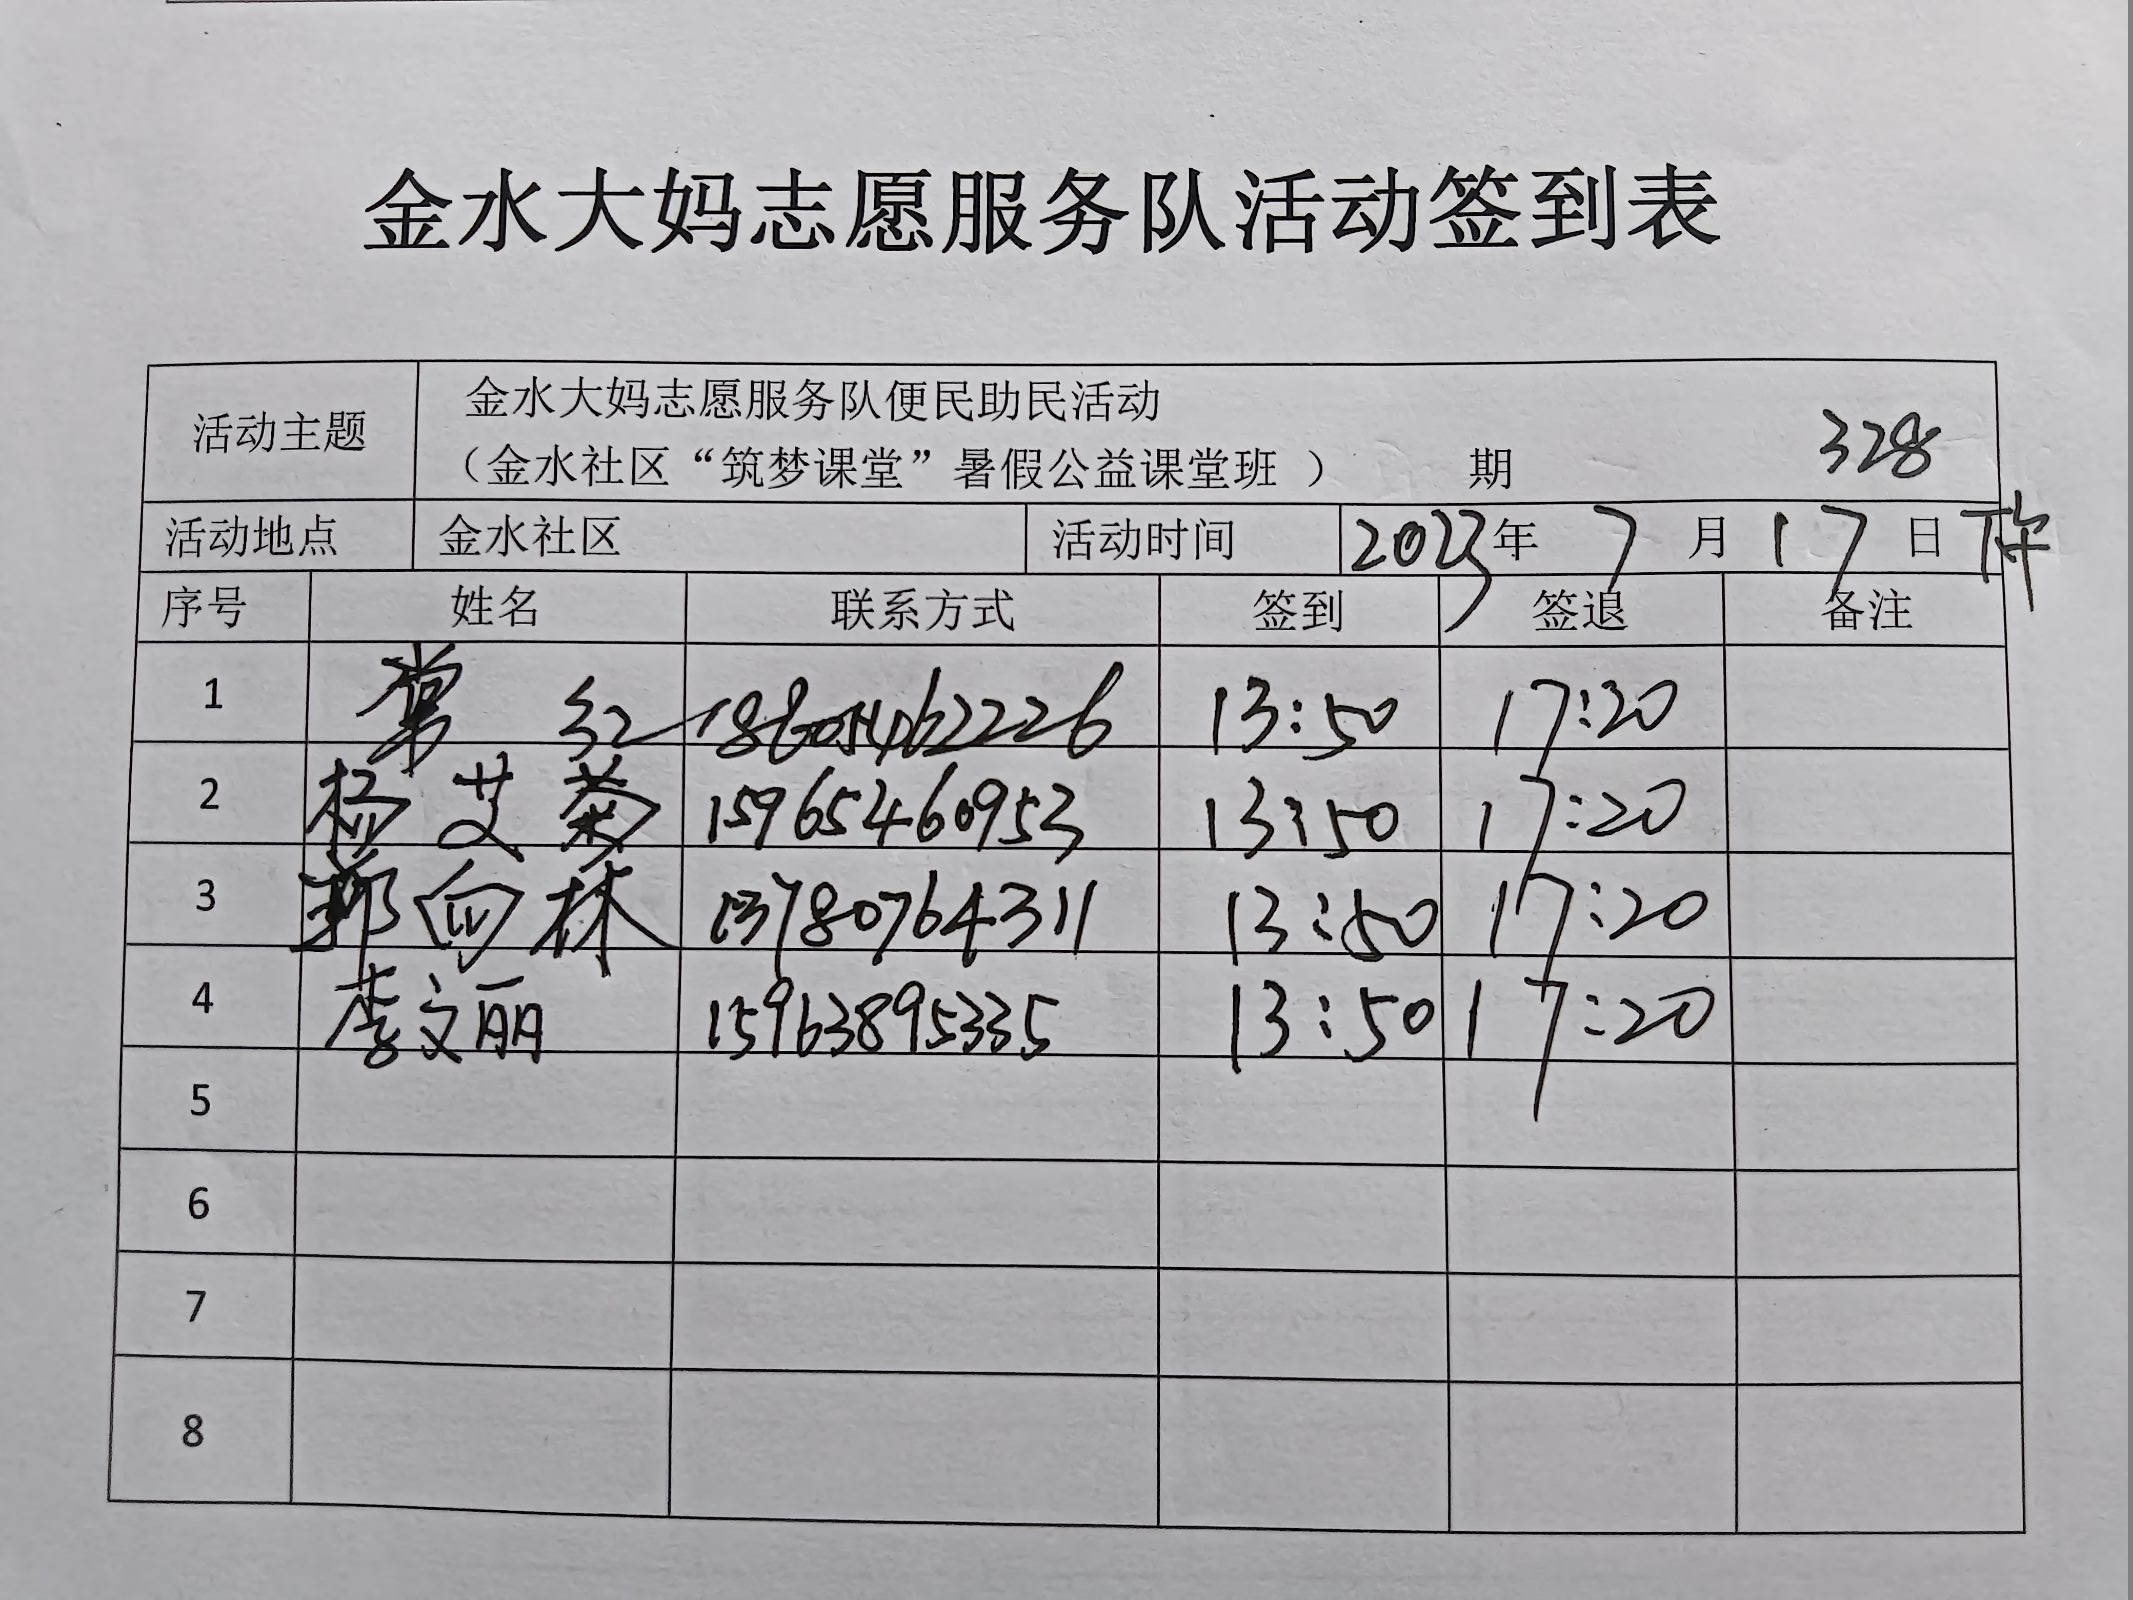 金水大妈志愿服务队活动签到表
活动主题 金水大妈志愿服务队便民助民活动
（金水社区“筑梦课堂”暑假公益课堂班 ） 期 328
活动地点 金水社区 活动时间 2023年 7 月 17 日 下午
序号 姓名 联系方式 签到 签退 备注
1 常红 18605462226 13:50 17:20
2 杨艾菊 15965460953 13:50 17:20
3 郭向林 13780764311 13:50 17:20
4 李文丽 15963895335 13:50 17:20
5
6
7
8